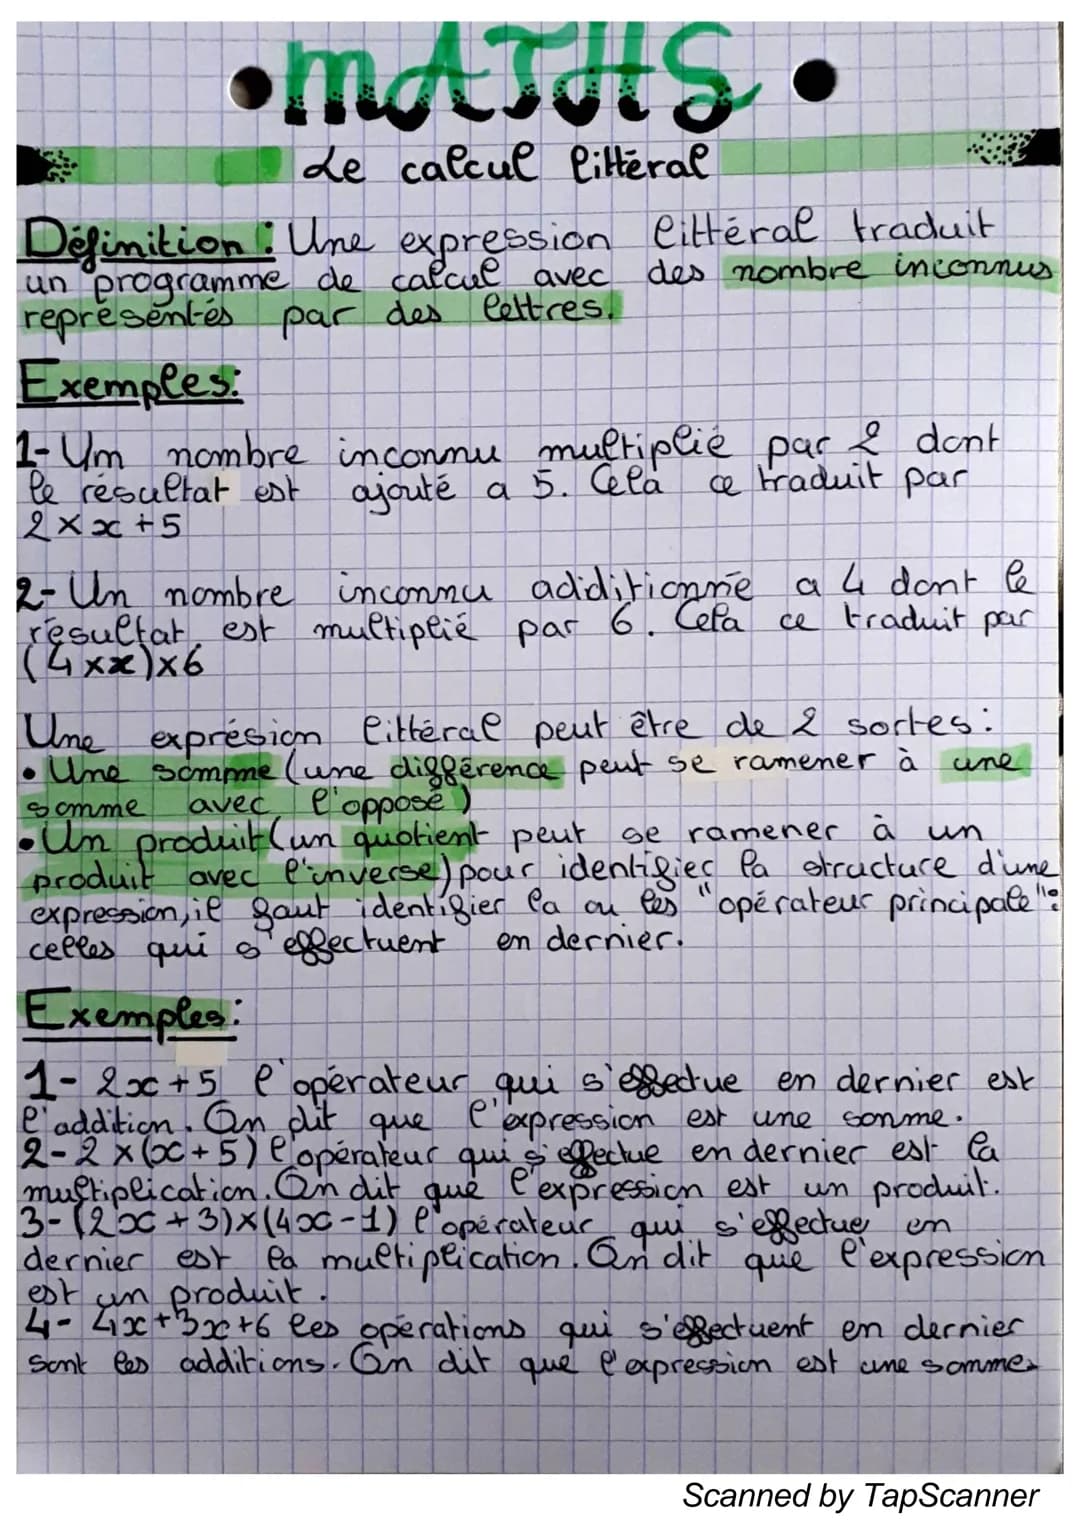 MATHS
Le calcul littéral
Définition : Une expression littéral traduit
un programme de calcul avec des nombre inconnus
représentés par des lettres.
Exemples:
1- Um nombre inconnu multiplié par 2 dont
le résultat est ajouté a 5. Cela ce traduit par
2×x+5
2- Un nombre inconnu additionné a 4 dont le
résultat est multiplié par 6. Cela ce traduit par
(4×x)×6
Une exprésion littéral peut être de 2 sortes:
• Une somme (une différence peut se ramener à une
somme avec l'opposé)
• Un produit (un quotient peut se ramener à un
produit avec l'inverse) pour identifier la structure d'une
expression, il faut identifier la ou les "opérateur principale":
celles qui s'effectuent en dernier.
Exemples:
1- 2x+5 l'opérateur qui s'effectue en dernier est
l'addition. On dit que l'expression est une somme.
2- 2×(x+5) l'opérateur qui s'effectue en dernier est la
multiplication. On dit que l'expression est un produit.
3- (2x+3)×(4x-1) l'opérateur qui s'effectue en
dernier est la multiplication. On dit que l'expression
est un produit.
4- 4x+3x+6 les opérations qui s'effectuent en dernier
sont les additions. On dit que l'expression est une somme.
Scanned by TapScanner